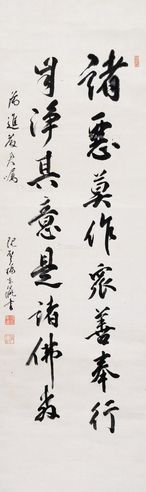 諸惡莫作衆善奉行
自淨其意是諸佛教
為進君囑
書